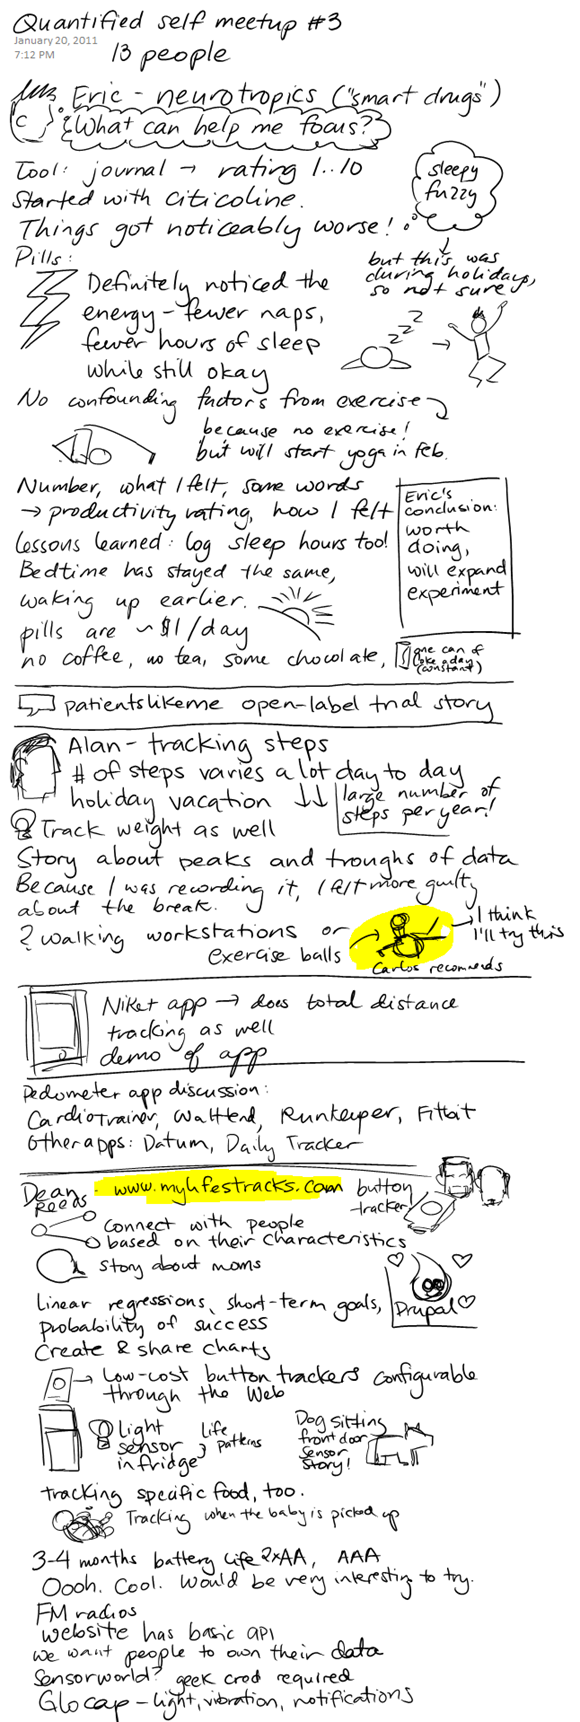 Quantified self meetup #3
January 20, 2011
7:12 PM
13 people
Eric - neurotropics ("smart drugs")
What can help me focus?
Tool: journal → rating 1..10
Started with citicoline.
Things got noticeably worse!
sleepy
fuzzy
but this was
during holidays,
so not sure
Pills:
Definitely noticed the
energy - fewer naps,
fewer hours of sleep
while still okay
z z z
No confounding factors from exercise
because no exercise!
but will start yoga in Feb.
Number, what I felt, some words
→ productivity rating, how I felt
Lessons learned: log sleep hours too!
Bedtime has stayed the same,
waking up earlier.
pills are ~$1/day
no coffee, no tea, some chocolate,
one can of
coke a day
(constant)
Eric's
conclusion:
worth
doing,
will expand
experiment
patientslikeme open-label trial story
Alan - tracking steps
# of steps varies a lot day to day
holiday vacation ↓↓
large number of
steps per year!
Track weight as well
Story about peaks and troughs of data
Because I was recording it, I felt more guilty
about the break.
? walking workstations or
exercise balls
Carlos recommends
I think
I'll try this
Niket app → does total distance
tracking as well
demo of app
Pedometer app discussion:
CardioTrainer, Runkeeper, Fitbit
Other apps: Datum, Daily Tracker
Dean
www.mylifestracks.com
button
tracker
Connect with people
based on their characteristics
Story about moms
Linear regressions, short-term goals,
probability of success
Create & share charts
Drupal
→ Low-cost button trackers configurable
through the Web
Light
sensor
in fridge
Life
patterns
Dog sitting
front door
sensor
story!
tracking specific food, too.
Tracking when the baby is picked up
3-4 months battery life 2xAA, AAA
Oooh. Cool. Would be very interesting to try.
FM radios
website has basic API
we want people to own their data
Sensorworld? geek cred required
Glocap - light, vibration, notifications